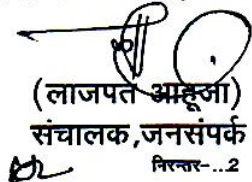 (लाजपत आहूजा)
संचालक,जनसंपर्क
निरन्तर-...2